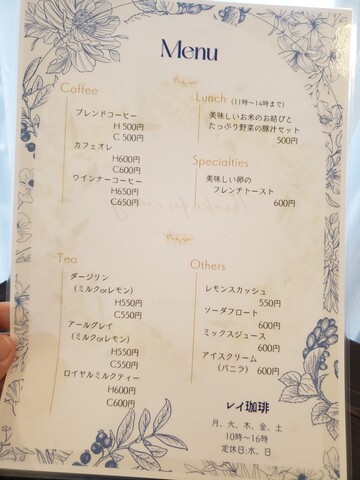 Menu
Coffee
ブレンドコーヒー
H 500円
C 500円
カフェオレ
H600円
C600円
ウインナーコーヒー
H650円
C650円
Lunch (11時〜14時まで)
美味しいお米のお結びと
たっぷり野菜の豚汁セット
500円
Specialties
美味しい卵の
フレンチトースト
600円
Tea
ダージリン
(ミルクorレモン)
H550円
C550円
アールグレイ
(ミルクorレモン)
H550円
C550円
ロイヤルミルクティー
H600円
C600円
Others
レモンスカッシュ
550円
ソーダフロート
600円
ミックスジュース
600円
アイスクリーム
(バニラ) 600円
レイ珈琲
月、火、木、金、土
10時〜16時
定休日:水、日